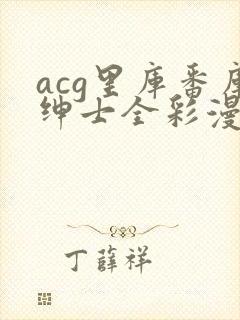 acg里库番库
绅士全彩漫
丁薛祥